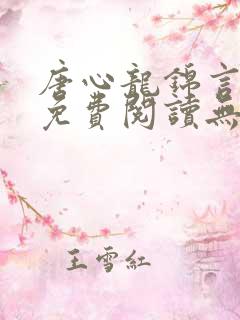 唐心龍錦言
免費閱讀無
王雪紅